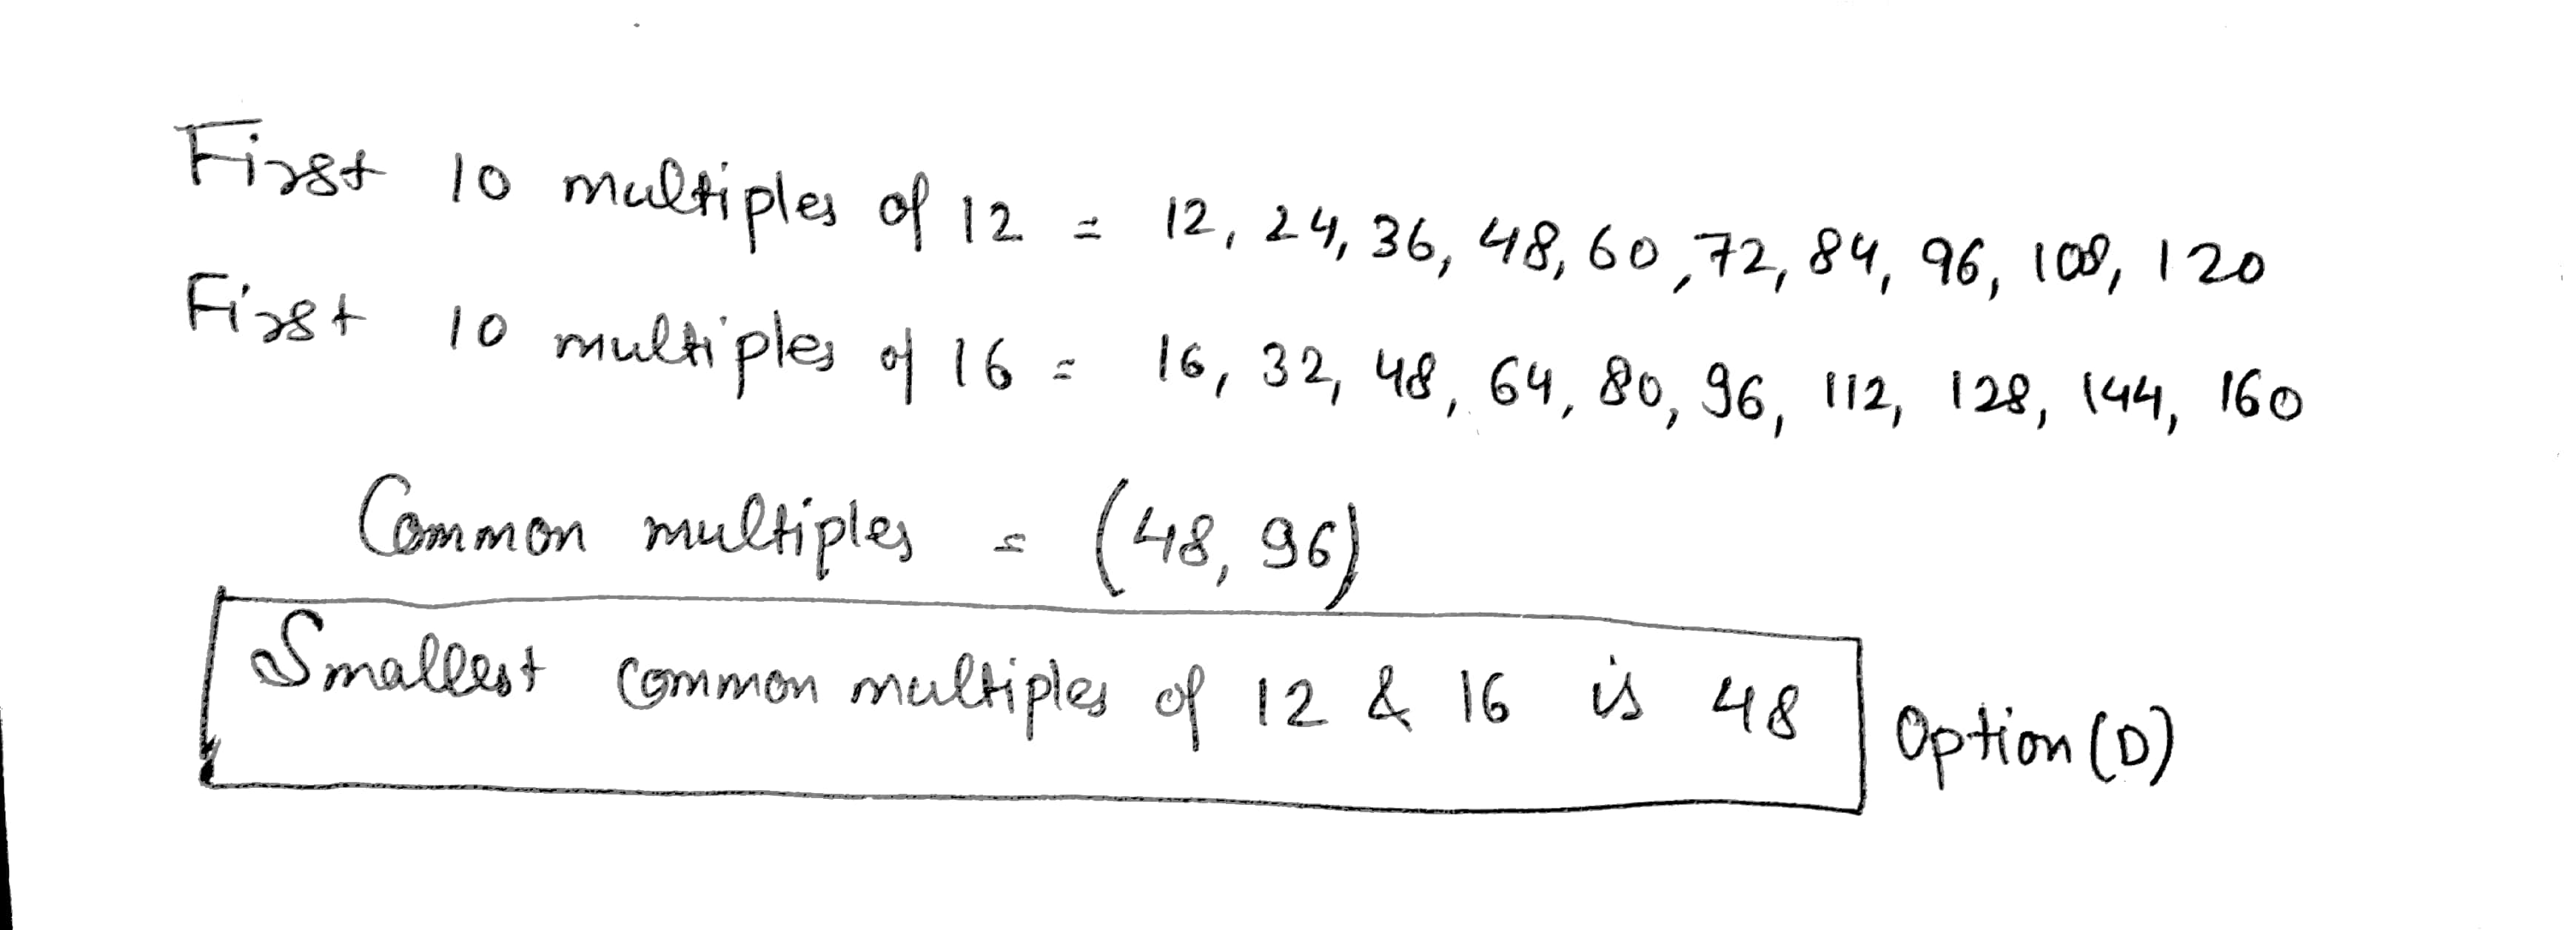 First 10 multiples of 12 = 12, 24, 36, 48, 60, 72, 84, 96, 108, 120
First 10 multiples of 16 = 16, 32, 48, 64, 80, 96, 112, 128, 144, 160
Common multiples = (48, 96)
Smallest common multiples of 12 & 16 is 48 Option (D)